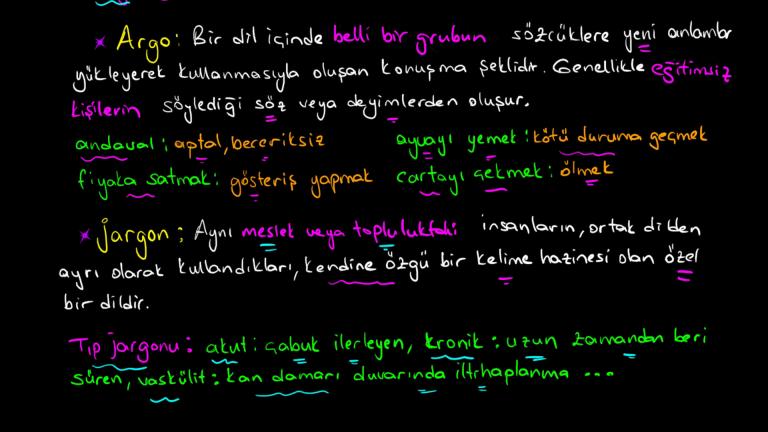 * Argo: Bir dil içinde belli bir grubun sözcüklere yeni anlamlar
yükleyerek kullanmasıyla oluşan konuşma şeklidir. Genellikle eğitimsiz
kişilerin söylediği söz veya deyimlerden oluşur.
andaval: aptal, beceriksiz ayvayı yemek: kötü duruma geçmek
fiyaka satmak: gösteriş yapmak cartayı çekmek: ölmek
* Jargon: Aynı meslek veya topluluktaki insanların, ortak dilden
ayrı olarak kullandıkları, kendine özgü bir kelime hazinesi olan özel
bir dildir.
Tıp jargonu: akut: çabuk ilerleyen, kronik: uzun zamandan beri
süren, vaskülit: kan damarı duvarında iltihaplanma ...